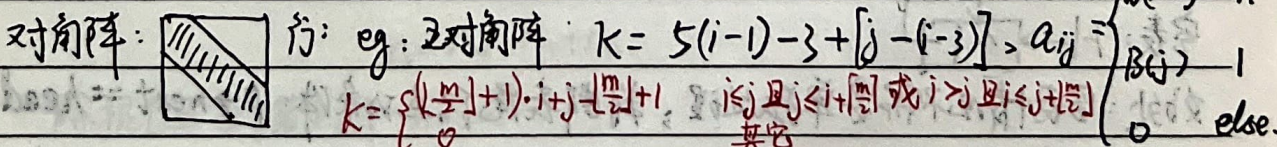 对角阵: 行: eg: 五对角阵 K = 5(i-1)-3+[j-(i-3)], aij =
B(j) 1
K = { (⌊m/2⌋+1)·i+j-⌊m/2⌋+1, i≤j 且 j≤i+⌈m/2⌉ 或 i>j 且 i≤j+⌊m/2⌋
0 其它 0 else.